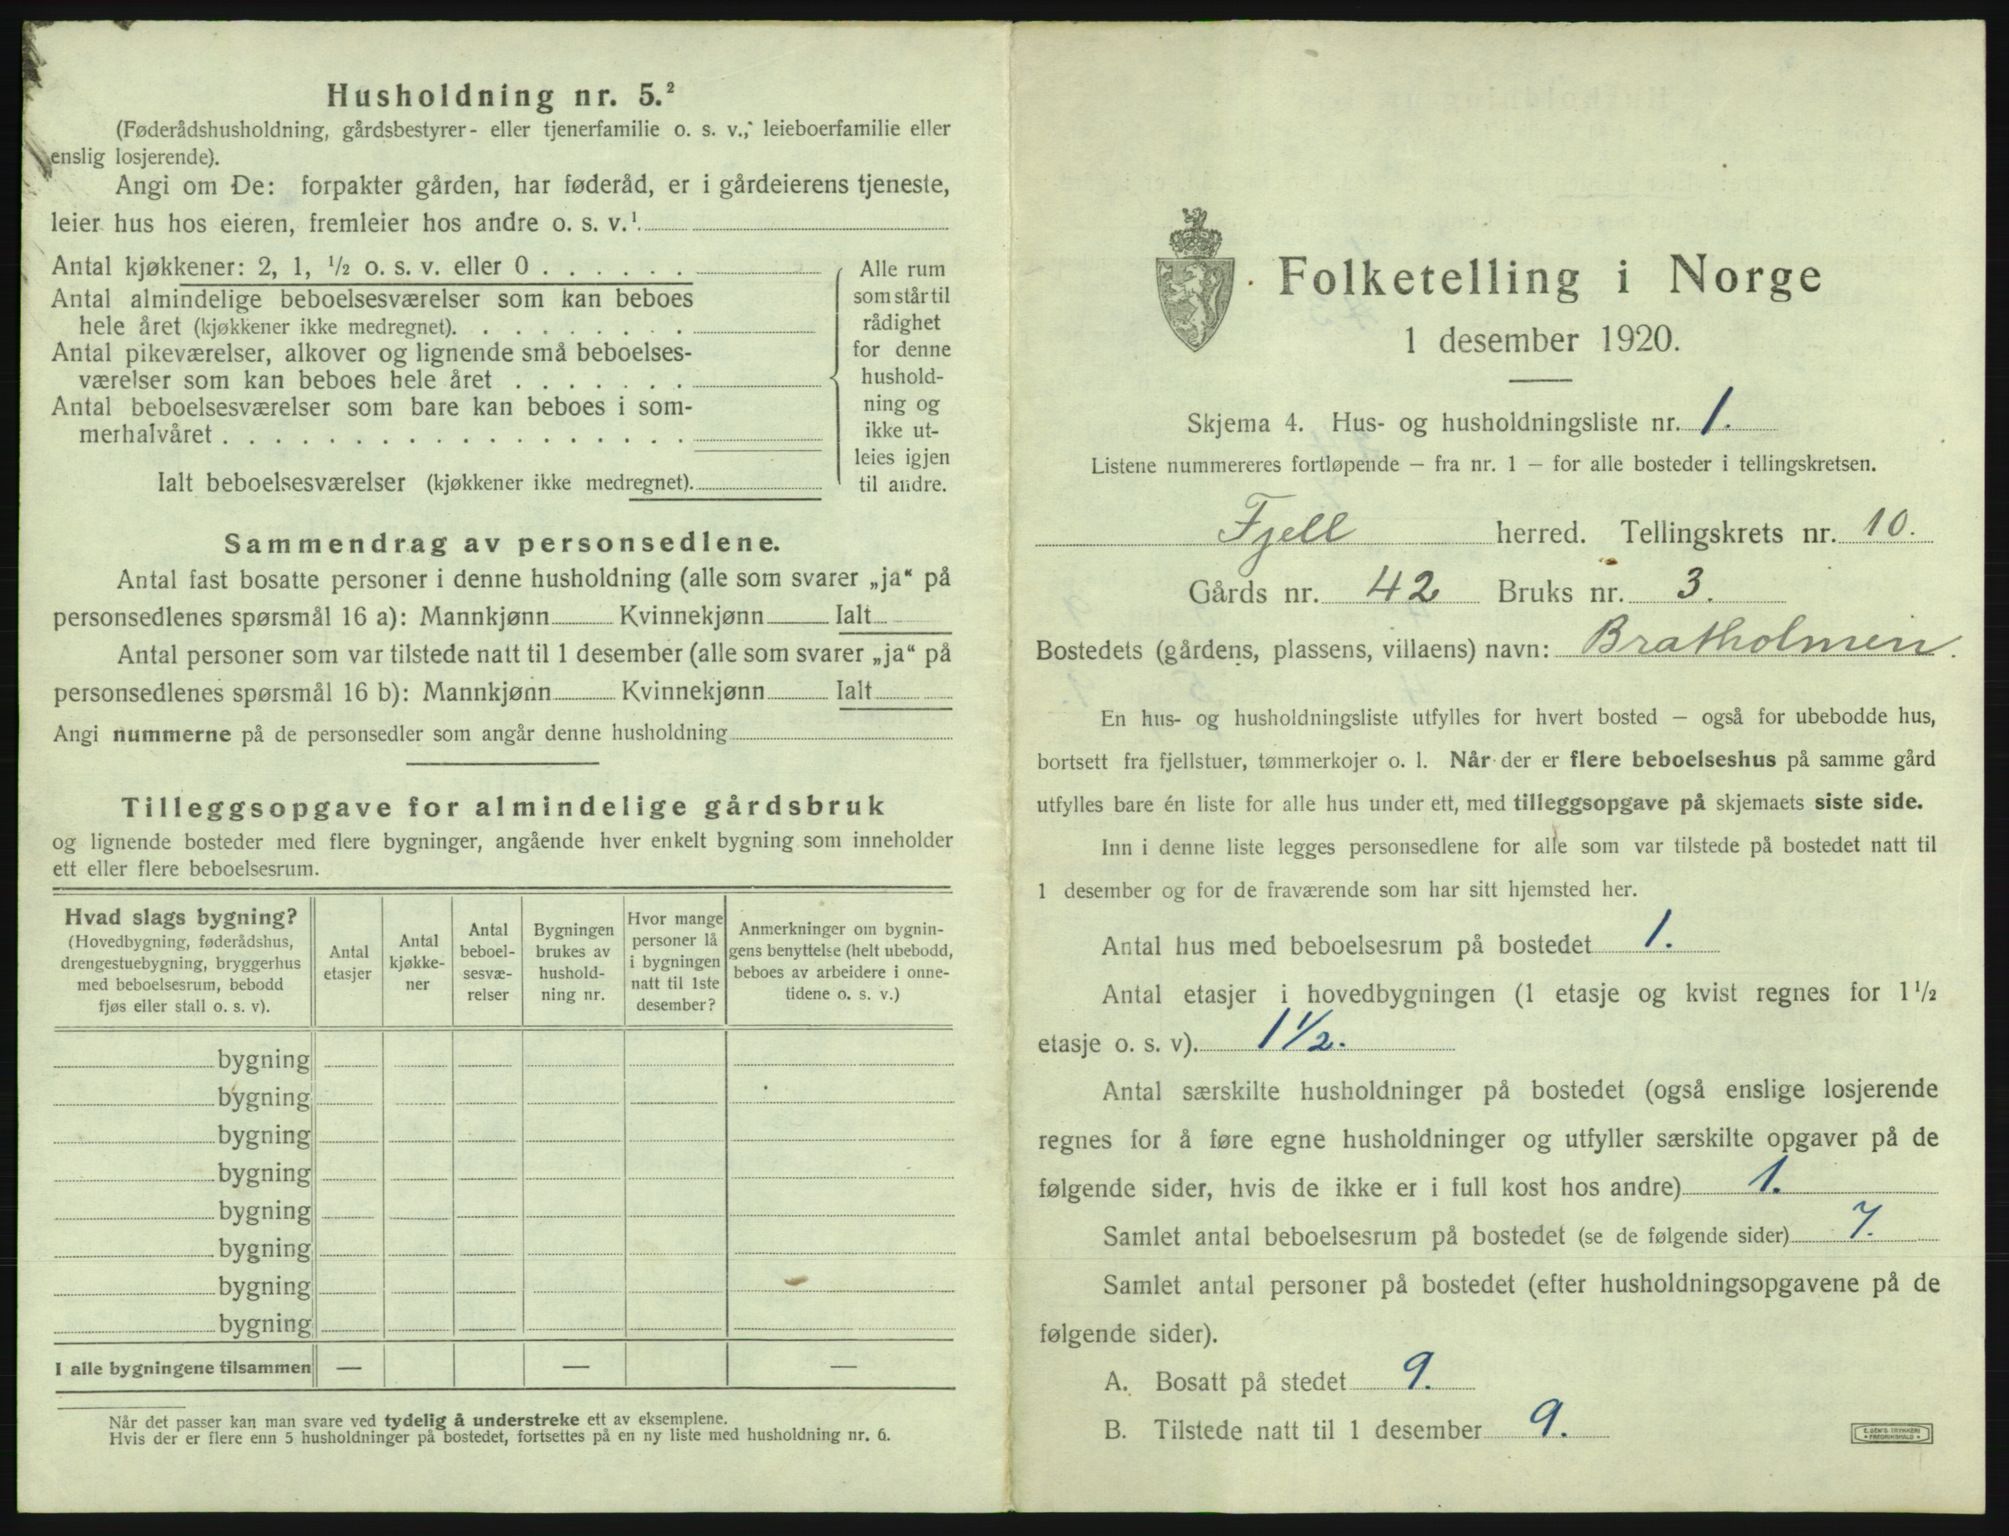 Husholdning nr. 5.²
(Føderådshusholdning, gårdsbestyrer- eller tjenerfamilie o. s. v., leieboerfamilie eller
enslig losjerende).
Angi om De: forpakter gården, har føderåd, er i gårdeierens tjeneste,
leier hus hos eieren, fremleier hos andre o. s. v.¹
Antal kjøkkener: 2, 1, ½ o. s. v. eller 0 . . . . . .
Antal almindelige beboelsesværelser som kan beboes
hele året (kjøkkener ikke medregnet). . . . . . . . .
Antal pikeværelser, alkover og lignende små beboelses-
værelser som kan beboes hele året . . . . . . .
Antal beboelsesværelser som bare kan beboes i som-
merhalvåret . . . . . . . . . . . . . . . . .
Ialt beboelsesværelser (kjøkkener ikke medregnet).
Alle rum
som står til
rådighet
for denne
hushold-
ning og
ikke ut-
leies igjen
til andre.
Sammendrag av personsedlene.
Antal fast bosatte personer i denne husholdning (alle som svarer „ja“ på
personsedlenes spørsmål 16 a): Mannkjønn Kvinnekjønn Ialt
Antal personer som var tilstede natt til 1 desember (alle som svarer „ja“ på
personsedlenes spørsmål 16 b): Mannkjønn Kvinnekjønn Ialt
Angi nummerne på de personsedler som angår denne husholdning
Tilleggsopgave for almindelige gårdsbruk
og lignende bosteder med flere bygninger, angående hver enkelt bygning som inneholder
ett eller flere beboelsesrum.
Hvad slags bygning?
(Hovedbygning, føderådshus,
drengestuebygning, bryggerhus
med beboelsesrum, bebodd
fjøs eller stall o. s. v).
Antal
etasjer
Antal
kjøkke-
ner
Antal
beboel-
sesvæ-
relser
Bygningen
brukes av
hushold-
ning nr.
Hvor mange
personer lå
i bygningen
natt til 1ste
desember?
Anmerkninger om bygnin-
gens benyttelse (helt ubebodd,
beboes av arbeidere i onne-
tidene o. s. v.)
bygning
bygning
bygning
bygning
bygning
bygning
bygning
bygning
I alle bygningene tilsammen — — —
Når det passer kan man svare ved tydelig å understreke ett av eksemplene.
Hvis der er flere enn 5 husholdninger på bostedet, fortsettes på en ny liste med husholdning nr. 6.
Folketelling i Norge
1 desember 1920.
Skjema 4. Hus- og husholdningsliste nr. 1.
Listene nummereres fortløpende — fra nr. 1 — for alle bosteder i tellingskretsen.
Fjell herred. Tellingskrets nr. 10.
Gårds nr. 42 Bruks nr. 3.
Bostedets (gårdens, plassens, villaens) navn: Bratholmen.
En hus- og husholdningsliste utfylles for hvert bosted — også for ubebodde hus,
bortsett fra fjellstuer, tømmerkojer o. l. Når der er flere beboelseshus på samme gård
utfylles bare én liste for alle hus under ett, med tilleggsopgave på skjemaets siste side.
Inn i denne liste legges personsedlene for alle som var tilstede på bostedet natt til
1 desember og for de fraværende som har sitt hjemsted her.
Antal hus med beboelsesrum på bostedet 1.
Antal etasjer i hovedbygningen (1 etasje og kvist regnes for 1 ½
etasje o. s. v). 1 ½.
Antal særskilte husholdninger på bostedet (også enslige losjerende
regnes for å føre egne husholdninger og utfyller særskilte opgaver på de
følgende sider, hvis de ikke er i full kost hos andre) 1.
Samlet antal beboelsesrum på bostedet (se de følgende sider) 7.
Samlet antal personer på bostedet (efter husholdningsopgavene på de
følgende sider).
A. Bosatt på stedet 9.
B. Tilstede natt til 1 desember 9.
E. SEM'S TRYKKERI
FREDRIKSHALD